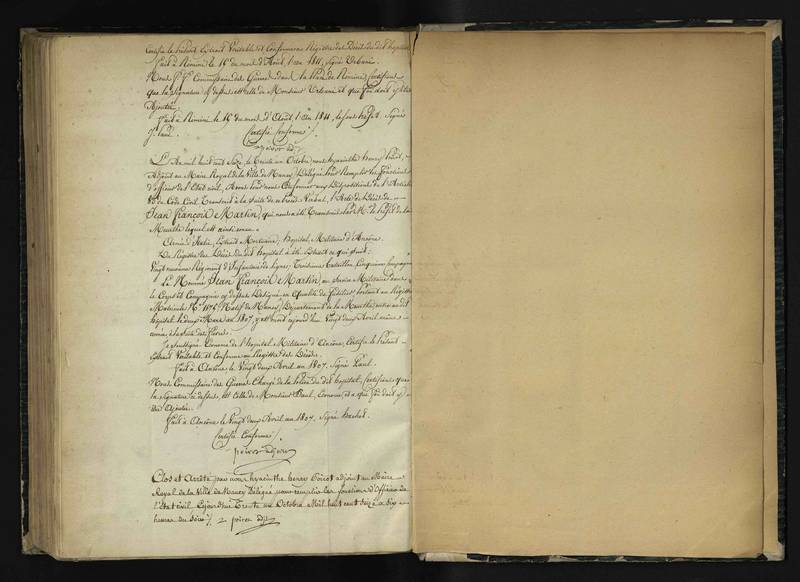 Certifie le Présent Extrait Véritable et Conforme au Registre des Décès du dit hôpital
fait à Rimini le 15 du mois d'Août l'an 1811, signé Urbani.
Nous Commissaire des Guerres dans la Place de Rimini, Certifions
que la signature cy dessus est celle de Monsieur Urbani et que foi doit y être
Ajoutée.
fait à Rimini le 15 du mois d'Août l'an 1811, Signé
Certifié Conforme /.
poirot adj.
L'An mil huit cent Seize, le Trente un Octobre, nous hyacinthe henry Poirot,
Adjoint au Maire Royal de la Ville de Nancy Délégué Pour Remplir les fonctions
d'officier de l'Etat civil, Avons Pour nous Conformer aux Dispositions de l'Article
du Code Civil Transcrit à la suite l'Acte de Décès de
Jean François Martin, qui nous a été Transmis Par Mr. le Préfet de la
Meurthe lequel est ainsi conçu.
Armée d'Italie, Extrait Mortuaire, hôpital Militaire d'Ancône.
Du Registre des Décès du dit hôpital à été Extrait ce qui suit:
Vingt neuvième Régiment d'Infanterie de Ligne, Troisième Bataillon Cinquième Compagnie
Le Nommé Jean François Martin, au Service Militaire dans
le Corps et Compagnie cy dessus Désigné en Qualité de fusilier, Porté au Registre
Matricule N.º 1175 Natif de Nancy, Département de la Meurthe, entré audit
hôpital le Mars an 1807, y est mort cejourd'hui Vingt deux Avril même
année, à la suite de fièvre.
Je soussigné Econome de l'hôpital Militaire d'Ancône, Certifie le Présent
Extrait Véritable et Conforme au Registre des Décès.
fait à Ancône le Vingt deux Avril an 1807. Signé Paul.
Nous Commissaire des Guerres Chargé de la Police du dit hôpital, Certifions que
la signature ci dessus, est Celle de Monsieur Paul, Econome, et que foi doit y
être Ajoutée.
fait à Ancône le Vingt deux Avril an 1807, Signé
Certifié Conforme /.
poirot adjoint
Clos et Arrêté par nous hyacinthe henry Poirot adjoint au Maire
Royal de la Ville de Nancy Délégué pour remplir les fonctions d'Officier de
l'état civil, Cejourd'hui Trente un Octobre Mil huit cent Seize à six
heures du Soir /. poirot adj.